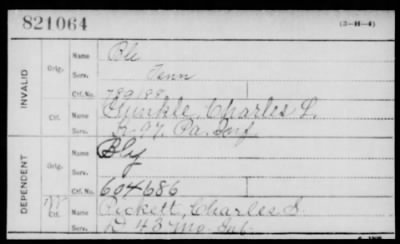 821064
(3-H-4)
INVALID
Orig.
Name
Ble
Serv.
Tenn
Ctf. No.
789188
Ctf.
Name
Gunkle, Charles L.
Serv.
K. 97. Pa. Inf.
DEPENDENT
Orig.
Name
Bly
Serv.
Ctf. No.
604686
Ctf.
Name
Rickett, Charles S.
Serv.
D 43 Mo. Inf.